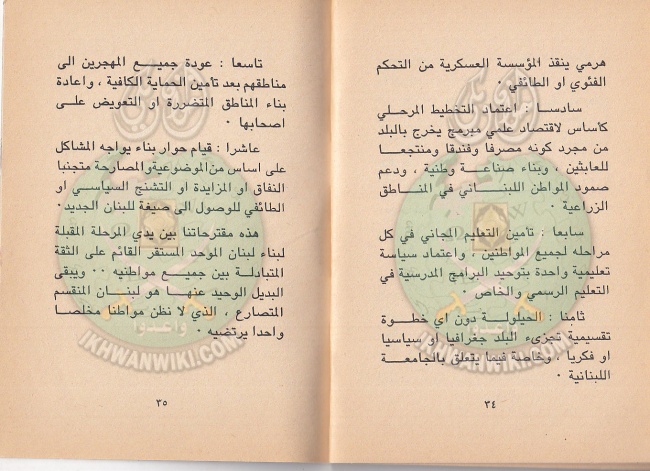 هرمي ينقذ المؤسسة العسكرية من التحكم
الفئوي او الطائفي ٠
سادسا : اعتماد التخطيط المرحلي
كأساس لاقتصاد علمي مبرمج يخرج بالبلد
من مجرد كونه مصرفا وفندقا ومنتجعا
للعابثين ، وبناء صناعة وطنية ، ودعم
صمود المواطن اللبناني في المناطق
الزراعية ٠
سابعا : تأمين التعليم المجاني في كل
مراحله لجميع المواطنين ، واعتماد سياسة
تعليمية واحدة بتوحيد البرامج المدرسية في
التعليم الرسمي والخاص ٠
ثامنا : الحيلولة دون اي خطوة
تقسيمية تجزىء البلد جغرافيا او سياسيا
او فكريا ، وخاصة فيما يتعلق بالجامعة
اللبنانية ٠
٣٤
تاسعا : عودة جميع المهجرين الى
مناطقهم بعد تأمين الحماية الكافية ، واعادة
بناء المناطق المتضررة او التعويض على
اصحابها ٠
عاشرا : قيام حوار بناء يواجه المشاكل
على اساس من الموضوعية والمصارحة متجنبا
النفاق او المزايدة او التشنج السياسي او
الطائفي للوصول الى صيغة للبنان الجديد٠
هذه مقترحاتنا بين يدي المرحلة المقبلة
لبناء لبنان الموحد المستقر القائم على الثقة
المتبادلة بين جميع مواطنيه ٠٠ ويبقى
البديل الوحيد عنها هو لبنان المنقسم
المتصارع ، الذي لا نظن مواطنا مخلصا
واحدا يرتضيه ٠
٣٥
واعدوا
IKHWANWIKI.COM
واعدوا
IKHWANWIKI.COM